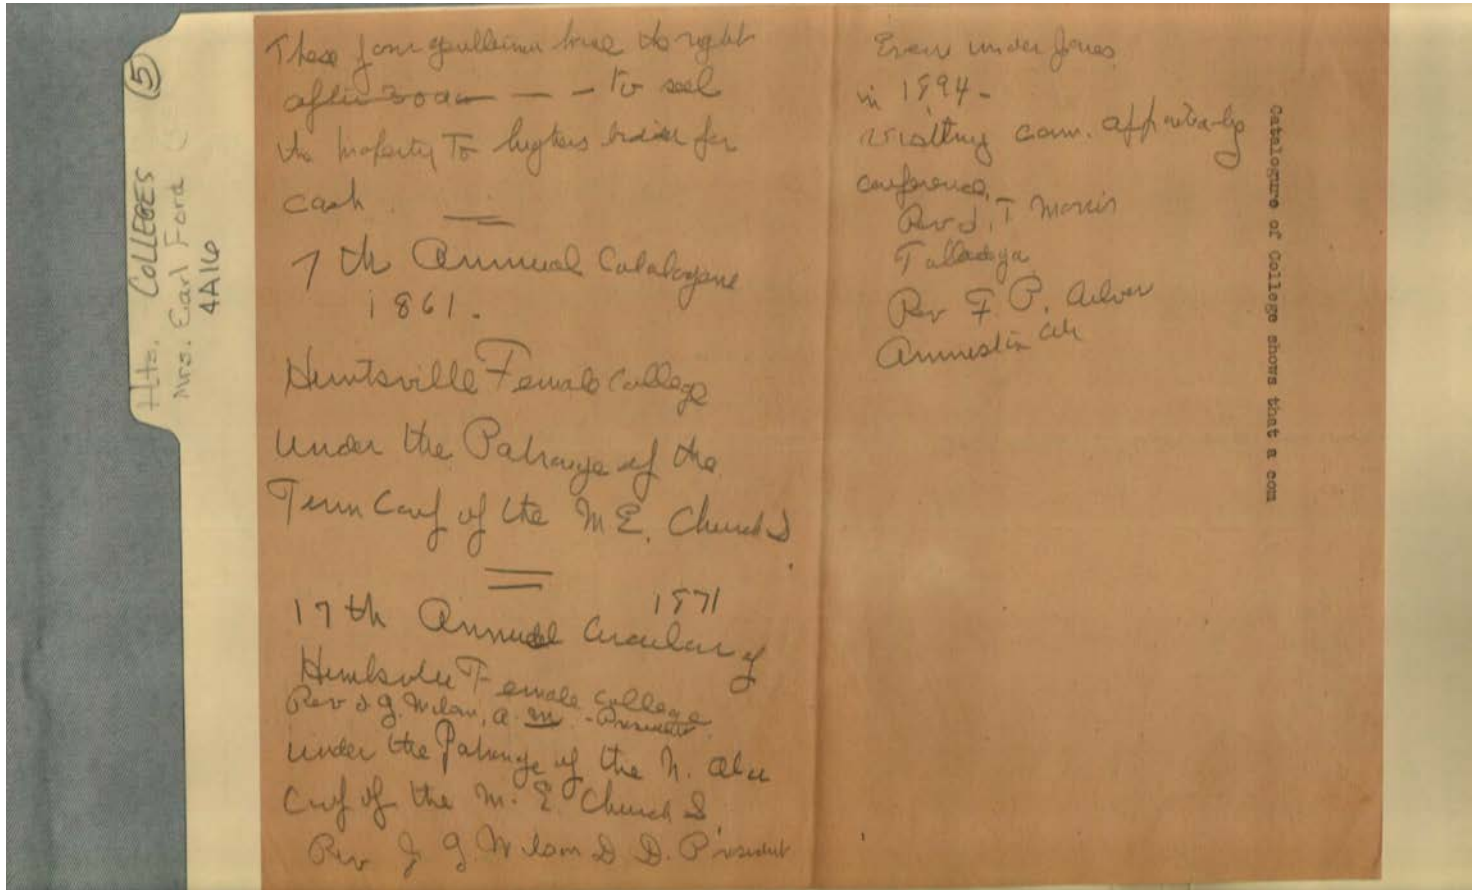 Hts. COLLEGES (5)
Mrs. Earl Ford
4A16
These four gentlemen have the right
after - - - to seel
the property to highest bidder for
cash.
7th Annual Catalogue
1861.
Huntsville Female College
Under the Patronage of the
Tenn Conf of the M E. Church S
1871
17th Annual Circular of
Huntsville Female College
Rev J G. Wilson, A. M. - President
under the Patronage of the N. Ala
Conf of the M. E. Church S.
Rev J. G. Wilson D D. President
Even under Jones
in 1894 -
visiting com. appointed by
conference.
Rev J. T Morris
Talladega
Rev F. P. Culver
Anniston Ala
Catalogure of College shows that a com